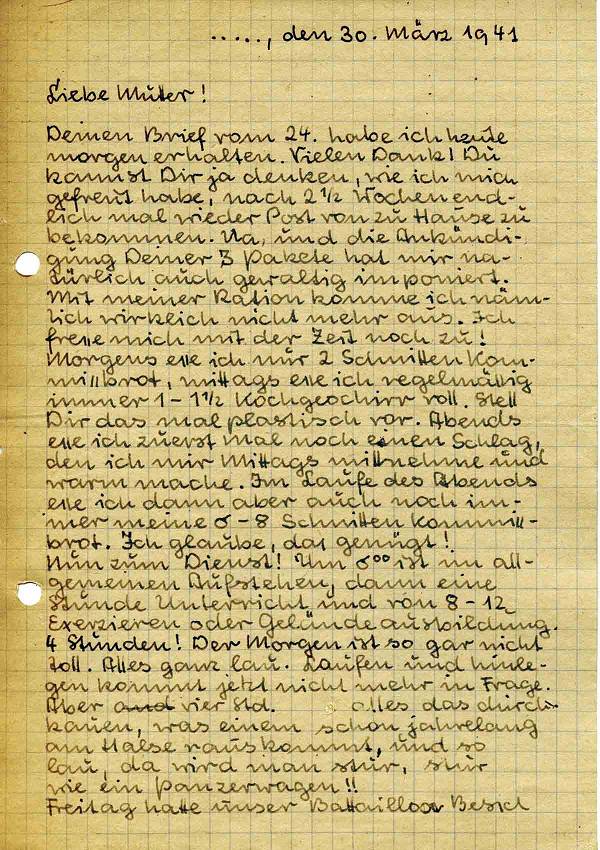 ....., den 30. März 1941
Liebe Mutter!
Deinen Brief vom 24. habe ich heute
morgen erhalten. Vielen Dank! Du
kannst Dir ja denken, wie ich mich
gefreut habe, nach 2 1/2 Wochen end-
lich mal wieder Post von zu Hause zu
bekommen. Na, und die Ankündi-
gung Deiner 3 Pakete hat mir na-
türlich auch gewaltig imponiert.
Mit meiner Ration komme ich näm-
lich wirklich nicht mehr aus. Ich
fresse mich mit der Zeit noch zu!
Morgens esse ich nur 2 Schnitten Kom-
missbrot, mittags esse ich regelmäßig
immer 1 - 1 1/2 Kochgeschirr voll. Stell
Dir das mal plastisch vor. Abends
esse ich zuerst mal noch einen Schlag,
den ich mir Mittags mitnehme und
warm mache. Im Laufe des Abends
esse ich dann aber auch noch im-
mer meine 6 - 8 Schnitten Kommiss-
brot. Ich glaube, das genügt!
Nun zum Dienst! Um 6°° ist im all-
gemeinen Aufstehen, dann eine
Stunde Unterricht und von 8 - 12
Exerzieren oder Geländeausbildung.
4 Stunden! Der Morgen ist so gar nicht
toll. Alles ganz lau. Laufen und hinle-
gen kommt jetzt nicht mehr in Frage.
Aber and vier Std. alles das durch-
kauen, was einem schon jahrelang
am Halse rauskommt, und so
lau, da wird man stur, stur
wie ein Panzerwagen!!
Freitag hatte unser Bataillon Besich